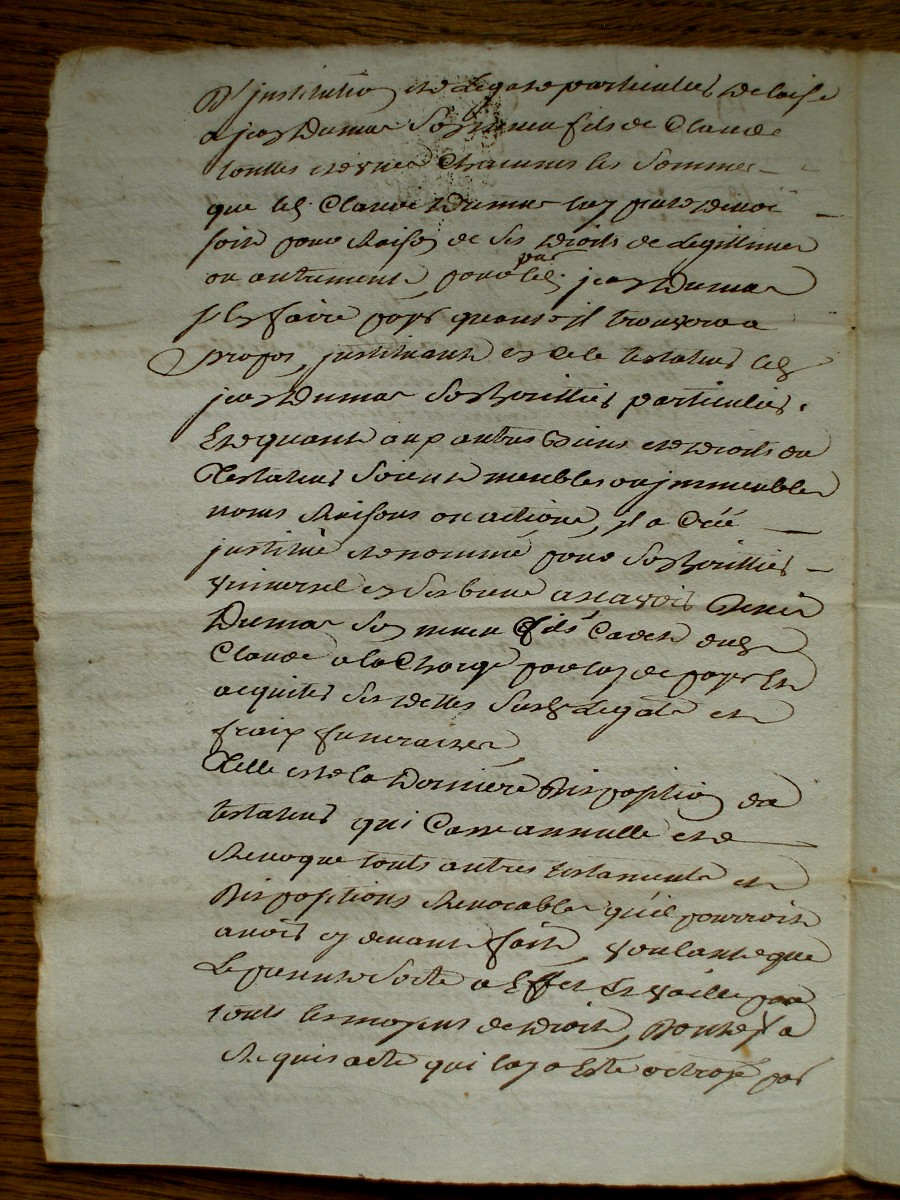 D'justitution et de legat particulier delaisse
a jean Dumas son neveu fils de Claude
touttes et unes Chacunes les Sommes
que led. Claude Dumas luy peut devoir
soit pour Raison de ses droits de legittimes
ou autrement, pour par led. jean Dumas
s'en faire payer quant il trouvera a
propos, justituant en icele testateur led.
jean Dumas son herittier particulier.
Et quant aux autres Biens et droits du
Testateur Soient meubles ou jmmeubles
noms Raisons ou actions, jl a Créé
justitué et nommé pour Son herittier
universel en ses biens a scavoir Denis
Dumas Son neveu fils Cadet dud.
Claude a la Charge par luy de payer et
acquiter ses dettes Susd. legats et
fraix funeraires
Telle est la Dernière Disposition du
testateur qui Casse annulle et
Revoque touts autres testaments et
Dispositions Revocables qu'il pourroit
avoir cy devant fait, voulant que
Le present Sorte a Effet Et vaille par
touts les moyens de droit, Dont jl a
Requis acte qui luy a Esté octroyé par